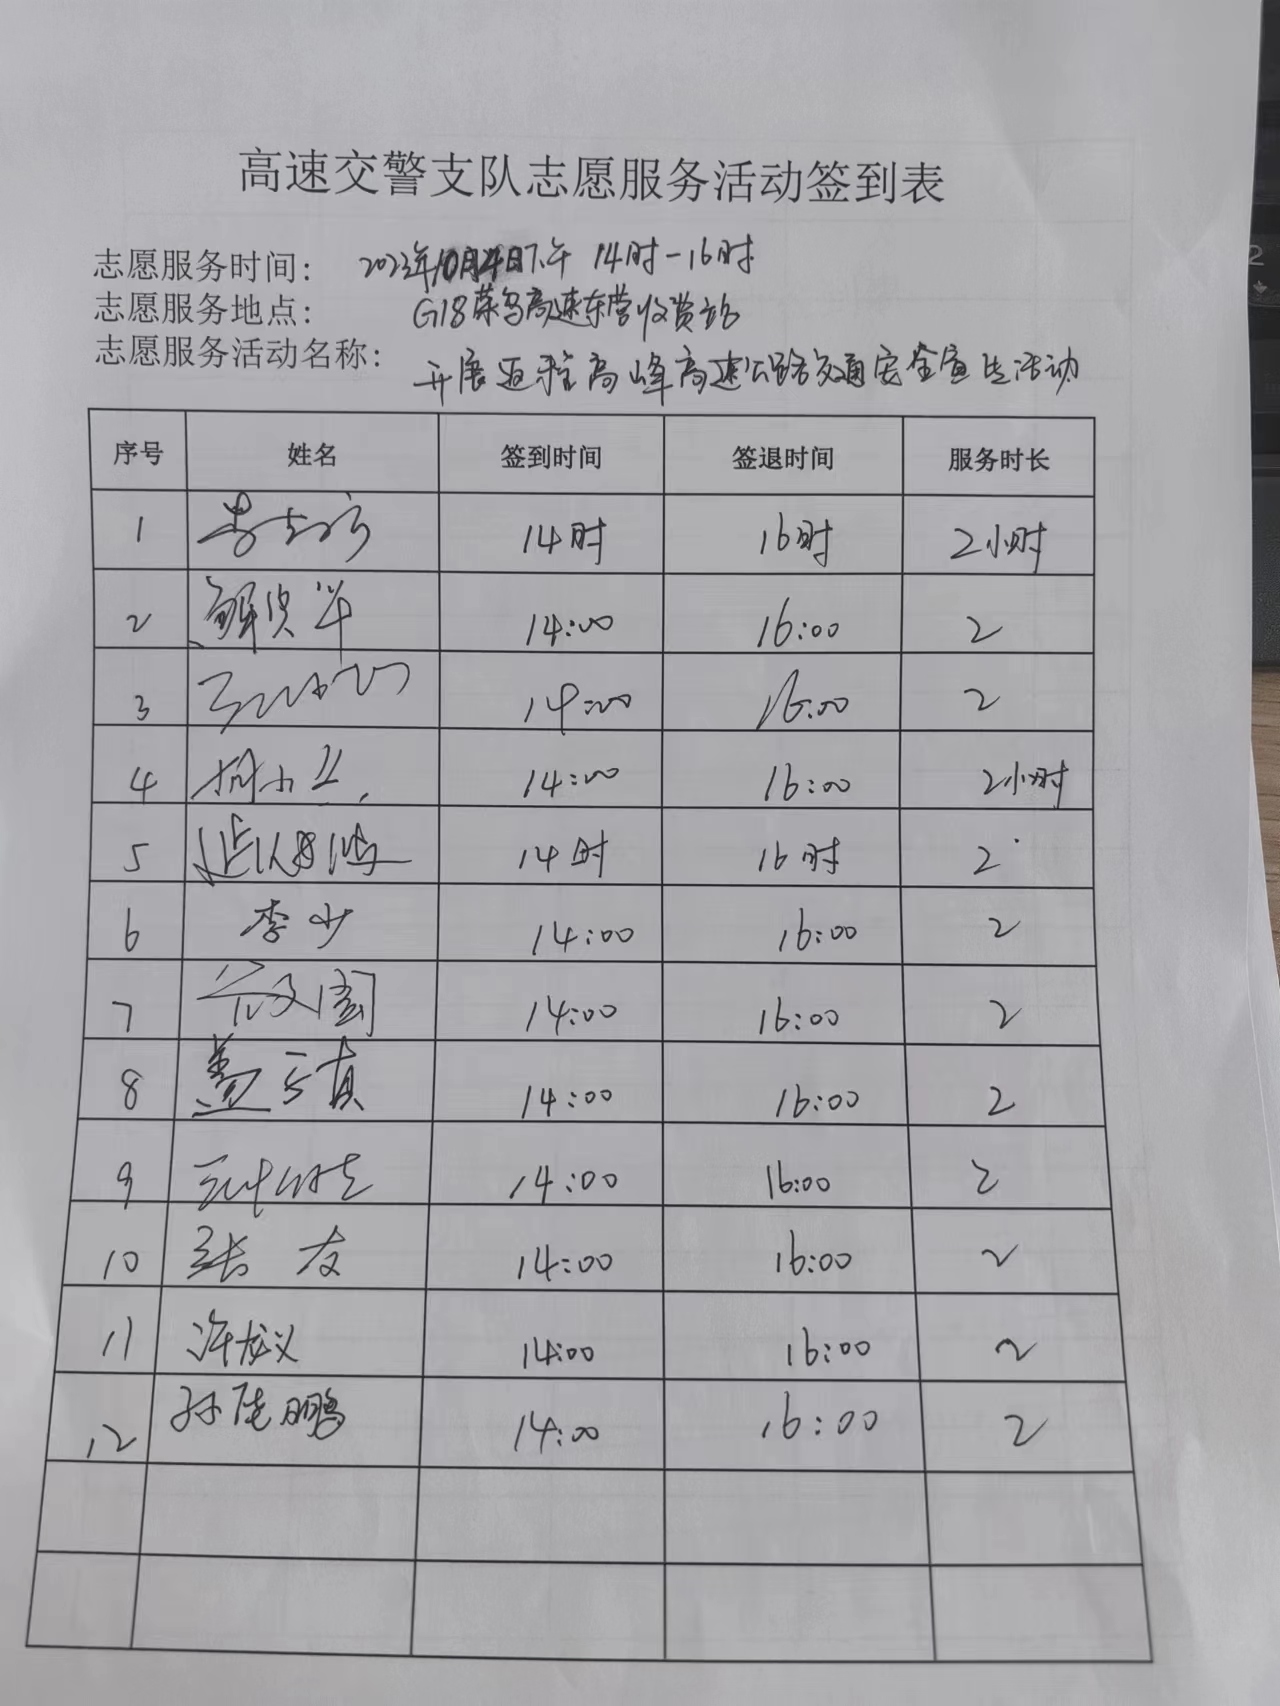 高速交警支队志愿服务活动签到表
志愿服务时间: 2023年10月4日下午 14时-16时
志愿服务地点: G18荣乌高速东营收费站
志愿服务活动名称: 开展返程高峰高速公路交通安全宣传活动
序号 姓名 签到时间 签退时间 服务时长
1 14时 16时 2小时
2 14:00 16:00 2
3 14:00 16:00 2
4 14:00 16:00 2小时
5 14时 16时 2
6 李少 14:00 16:00 2
7 14:00 16:00 2
8 14:00 16:00 2
9 14:00 16:00 2
10 张友 14:00 16:00 2
11 许龙义 14:00 16:00 2
12 孙庆鹏 14:00 16:00 2